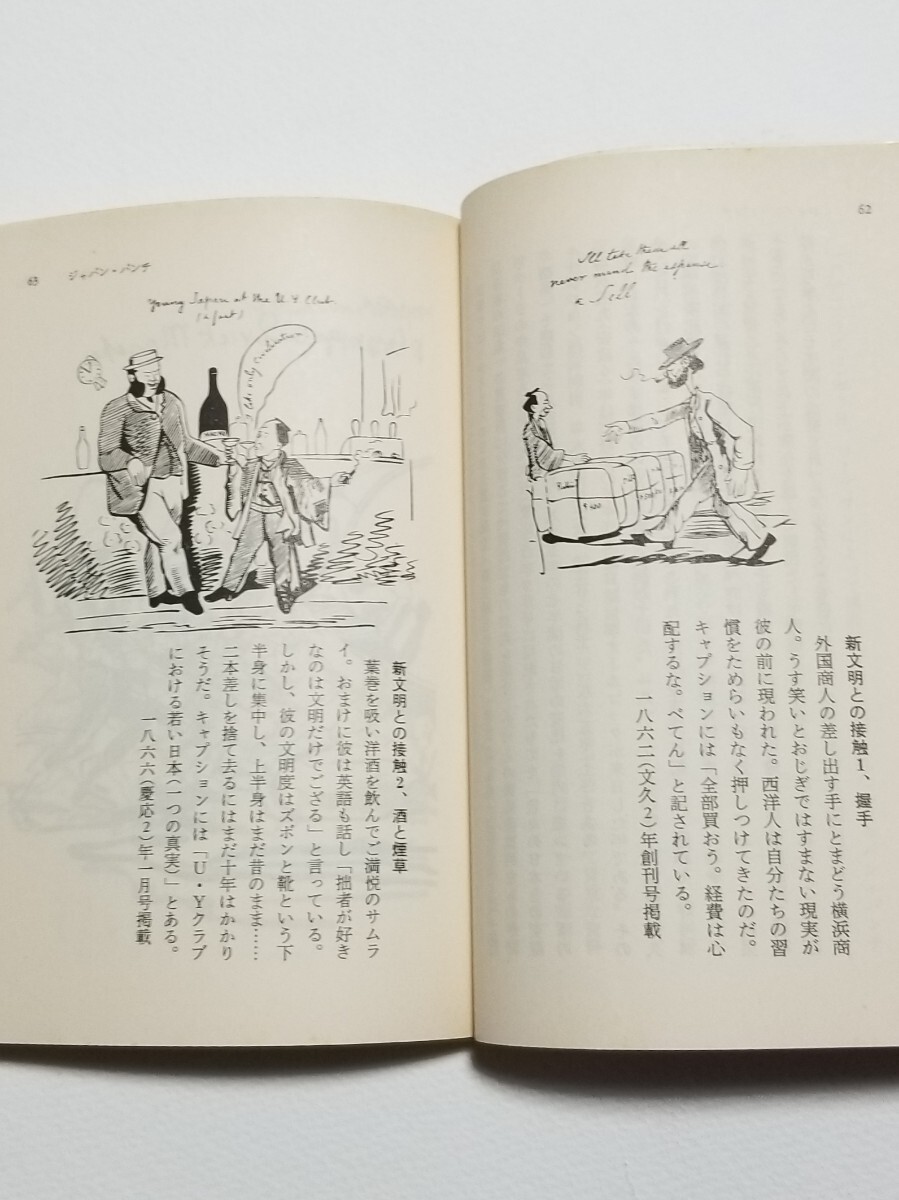 62
I'll take them all
never mind the expense
a Sell
新文明との接触1、握手
外国商人の差し出す手にとまどう横浜商
人。うす笑いとおじぎではすまない現実が
彼の前に現われた。西洋人は自分たちの習
慣をためらいもなく押しつけてきたのだ。
キャプションには「全部買おう。経費は心
配するな。ぺてん」と記されている。
一八六二(文久2)年創刊号掲載
63 ジャパン・パンチ
Young Japan at the U Y Club
(a fact)
I like only civilization
新文明との接触2、酒と煙草
葉巻を吸い洋酒を飲んでご満悦のサムラ
イ。おまけに彼は英語も話し「拙者が好き
なのは文明だけでござる」と言っている。
しかし、彼の文明度はズボンと靴という下
半身に集中し、上半身はまだ昔のまま……
二本差しを捨て去るにはまだ十年はかかり
そうだ。キャプションには「U・Yクラブ
における若い日本(一つの真実)」とある。
一八六六(慶応2)年一月号掲載